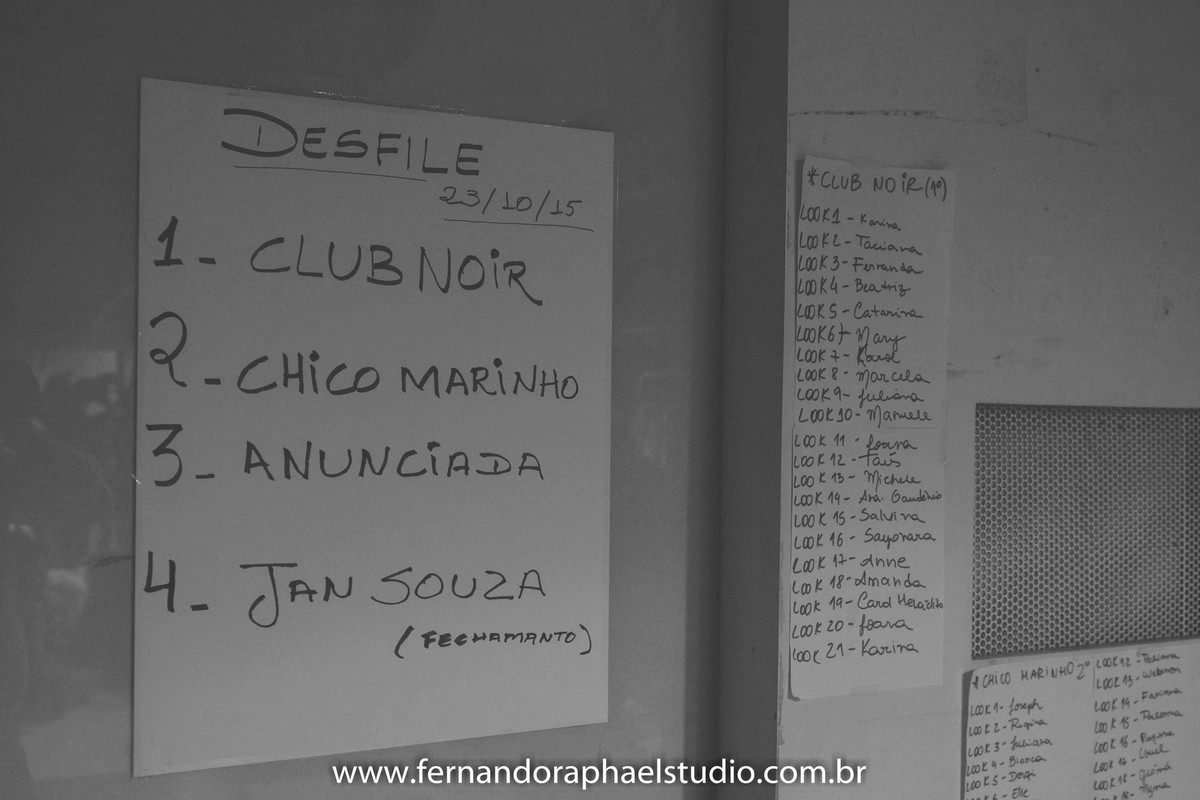 DESFILE
23/10/15
1- CLUB NOIR
2- CHICO MARINHO
3- ANUNCIADA
4- JAN SOUZA
(FECHAMANTO)
*CLUB NOIR (1º)
LOOK 1 - Karina
LOOK 2 - Taciana
LOOK 3 - Fernanda
LOOK 4 - Beatriz
LOOK 5 - Catarina
LOOK 6 - Mary
LOOK 7 - Karol
LOOK 8 - Marcela
LOOK 9 - Juliana
LOOK 10 - Manuele
LOOK 11 - Joana
LOOK 12 - Taís
LOOK 13 - Michele
LOOK 14 - Ana. Gaudênio
LOOK 15 - Salvina
LOOK 16 - Sayonara
LOOK 17 - Anne
LOOK 18 - Amanda
LOOK 19 - Carol
LOOK 20 - Joana
LOOK 21 - Karina
*CHICO MARINHO 2º
LOOK 1 - Joseph
LOOK 2 - Regina
LOOK 3 - Juliana
LOOK 4 - Bianca
LOOK 5 -
LOOK 12 - Taciana
LOOK 13 -
LOOK 14 - Fabiana
LOOK 15 - Paloma
LOOK 16 -
www.fernandoraphaelstudio.com.br